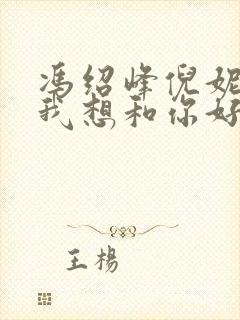 冯绍峰倪妮
我想和你好
王杨